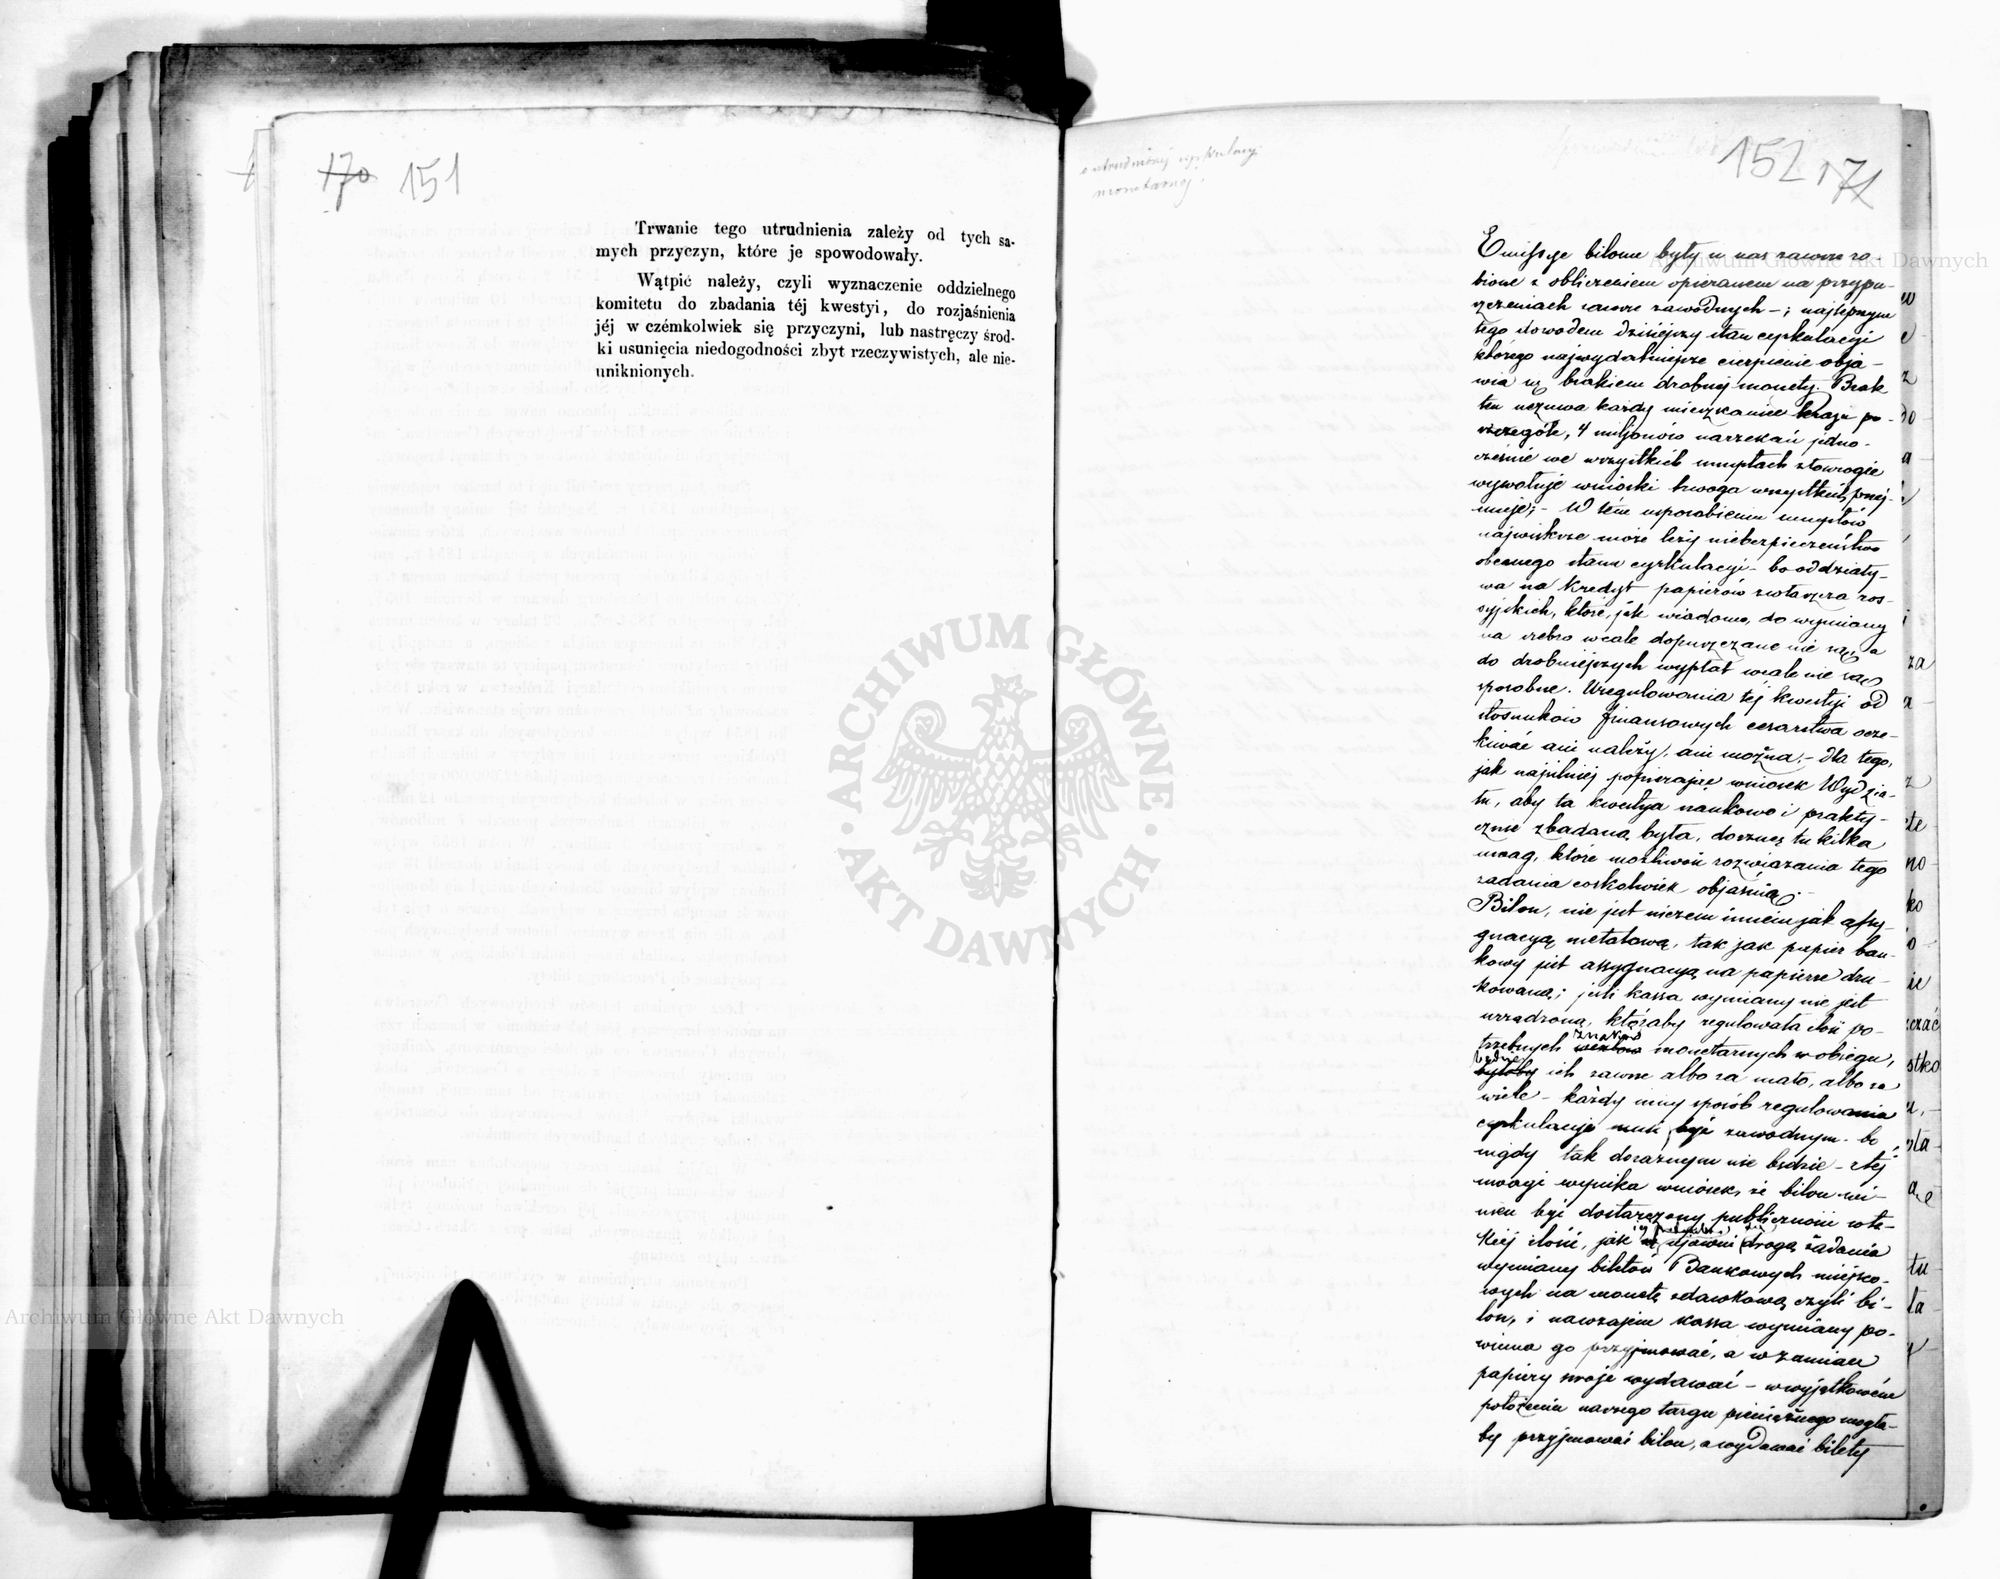 170 151
Trwanie tego utrudnienia zależy od tych sa-
mych przyczyn, które je spowodowały.
Wątpić należy, czyli wyznaczenie oddzielnego
komitetu do zbadania téj kwestyi, do rozjaśnienia
jéj w czémkolwiek się przyczyni, lub nastręczy środ-
ki usunięcia niedogodności zbyt rzeczywistych, ale nie-
uniknionych.
o utrudnionej cyrkulacyi
monetarnej.
152 171
Emissye bilonu były u nas zawsze ro-
bione z obliczeniem opieranem na przypu-
szczeniach zawsze zawodnych –; najlepszym
tego dowodem dzisiejszy stan cyrkulacyi
którego najwydatniejsze cierpienie obja-
wia się brakiem drobnej monety. Brak
ten uczuwa każdy mieszkaniec kraju po-
szczególe, 4 milionów narzekań jedno-
cześnie we wszystkich umysłach złowrogie
wywołuje wnioski trwoga wszystkich przej-
muje; – W tém usposobieniu umysłów
największe może leży niebezpieczeństwo
obecnego stanu cyrkulacyi – bo oddziały-
wa na kredyt papierów zwłaszcza ros-
syjskich, które, jak wiadomo, do wymiany
na srebro wcale dopuszczane nie są, a
do drobniejszych wypłat wcale nie są
sposobne. Uregulowania téj kwestyi od
stosunków finansowych cesarstwa ocze-
kiwać ani należy, ani można. – Dla tego,
jak najsilniej popierając wniosek Wydzia-
łu, aby ta kwestya naukowo i prakty-
cznie zbadaną była, dorzucę tu kilka
uwag, które możliwość rozwiązania tego
zadania cośkolwiek objaśnią. –
Bilon, nie jest niczem inném jak assy-
gnacyą metalową, tak jak papier ban-
kowy jest assygnacyą na papierze dru-
kowaną; jeśli kassa wymiany nie jest
urządzoną, któraby regulowała ilość po-
znaków
trzebnych monetarnych w obiegu,
będzie
byłoby ich zawsze albo za mało, albo za
wiele – każdy inny sposób regulowania
cyrkulacyi musi być zawodnym – bo
nigdy tak doraźnym nie będzie – z téj
uwagi wynika wniosek, że bilon wi-
nien być dostarczony publiczności w ta-
kiej ilości, jak się ujawni drogą żądania
wymiany biletów Bankowych miejsco-
wych na monetę zdawkową czyli bi-
lon, i nawzajem kassa wymiany po-
winna go przyjmować, a w zamian
papiery swoje wydawać – w wyjątkowém
położeniu naszego targu pieniężnego mogła-
by przyjmować bilon, a wydawać bilety
Archiwum Główne Akt Dawnych
Archiwum Główne Akt Dawnych
ARCHIWUM GŁÓWNE AKT DAWNYCH